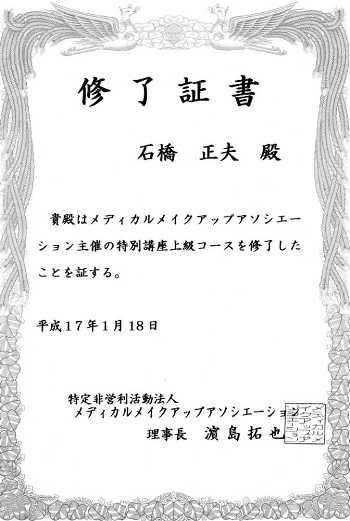 修了証書
石橋　正夫　殿
貴殿はメディカルメイクアップアソシエー
ション主催の特別講座上級コースを修了した
ことを証する。
平成１７年１月１８日
特定非営利活動法人
メディカルメイクアップアソシエーション
理事長　濱島拓也